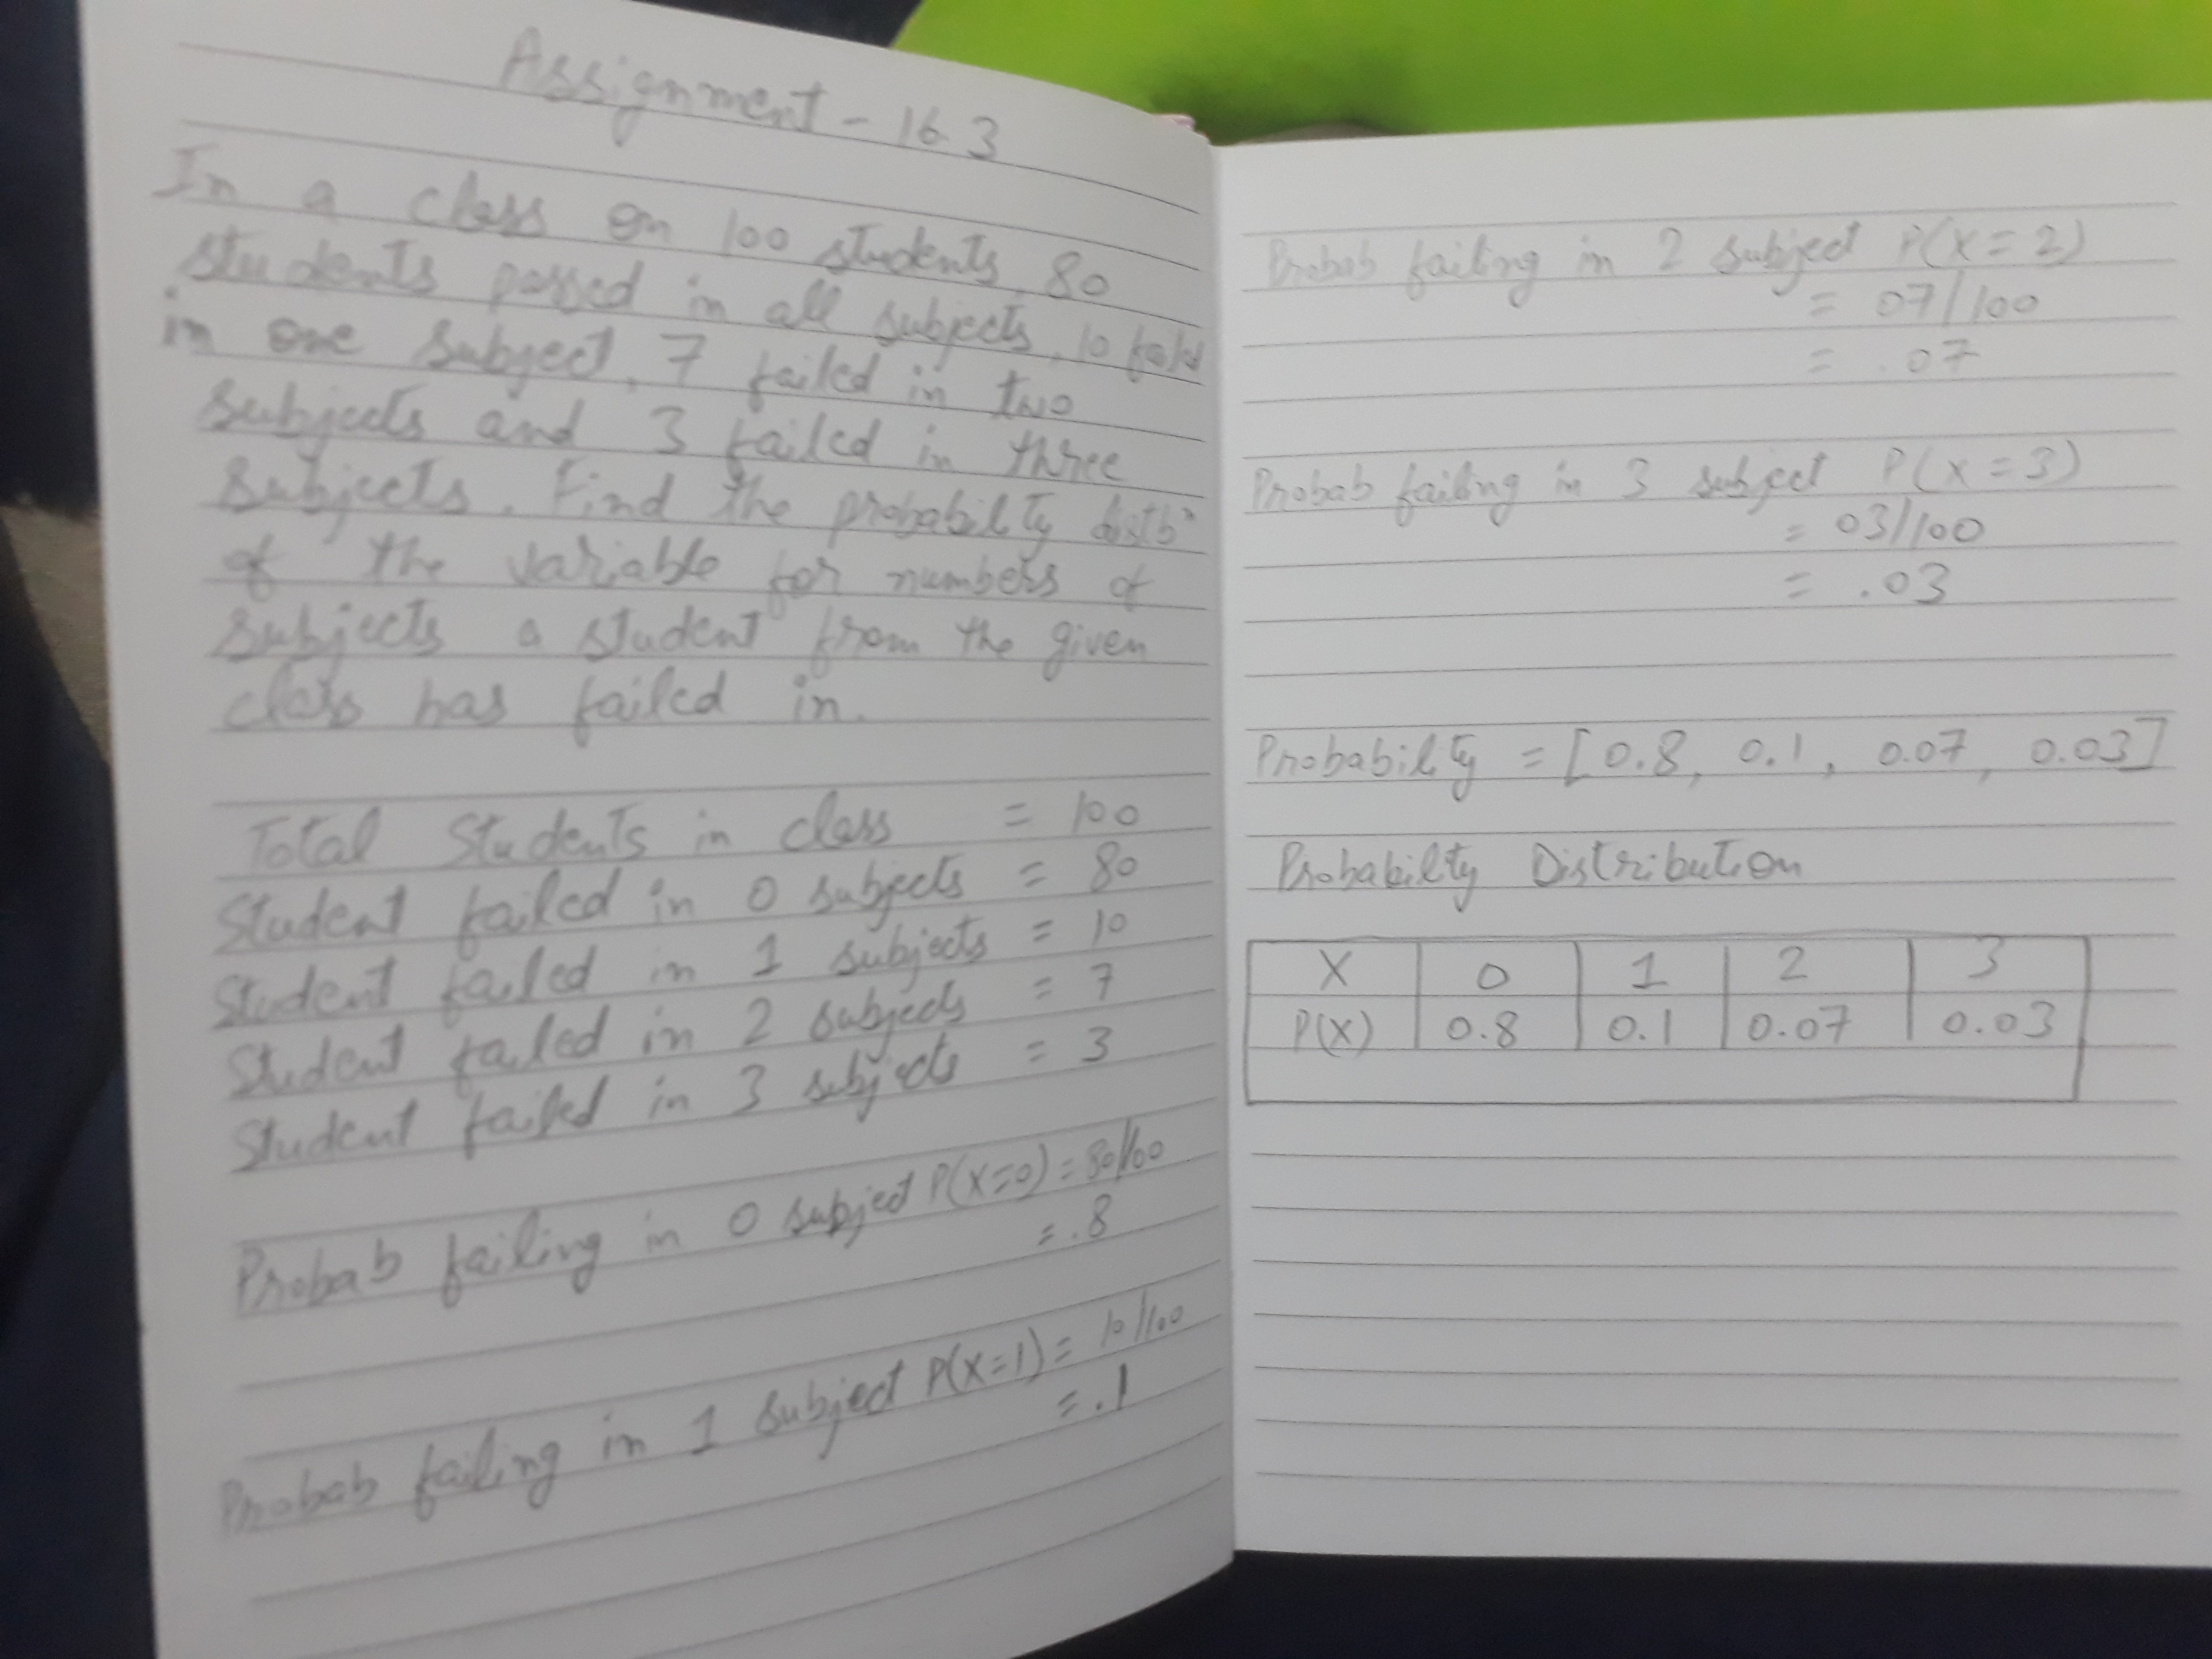 Assignment - 16.3
In a class on 100 students, 80
students passed in all subjects, 10 failed
in one subject, 7 failed in two
subjects and 3 failed in three
subjects. Find the probability distbⁿ
of the variable for numbers of
subjects a student from the given
class has failed in.
Total Students in class = 100
Student failed in 0 subjects = 80
Student failed in 1 subjects = 10
Student failed in 2 subjects = 7
Student failed in 3 subjects = 3
Probab failing in 0 subject P(X=0) = 80/100
= .8
Probab failing in 1 subject P(X=1) = 10/100
= .1
Probab failing in 2 subject P(X=2)
= 07/100
= .07
Probab failing in 3 subject P(X=3)
= 03/100
= .03
Probability = [0.8, 0.1, 0.07, 0.03]
Probability Distribution
X 0 1 2 3
P(X) 0.8 0.1 0.07 0.03